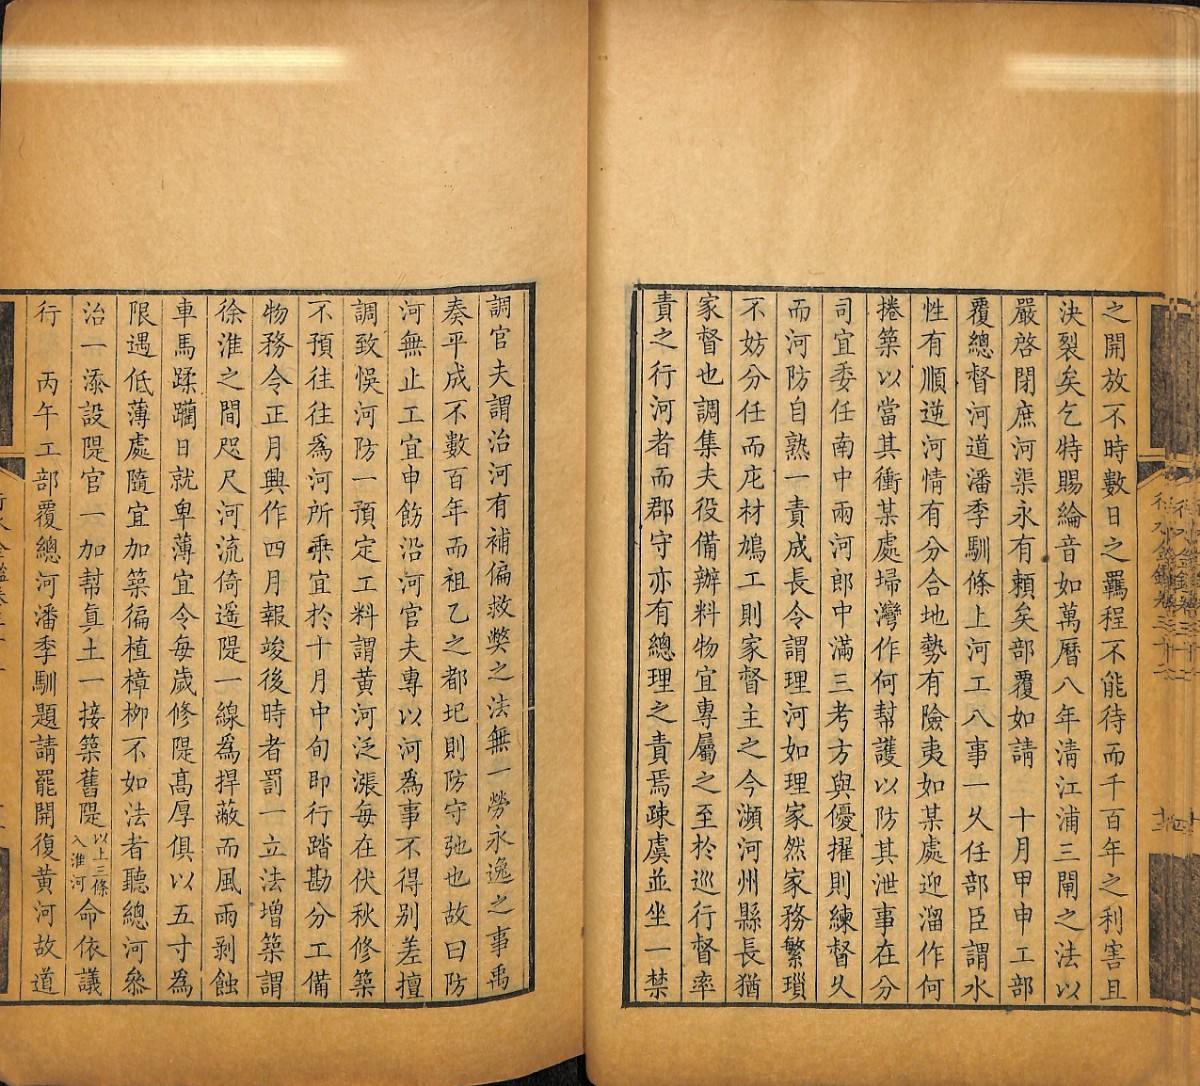 之開放不時數日之羈程不能待而千百年之利害且
決裂矣乞特賜綸音如萬曆八年淸江浦三閘之法以
嚴啓閉庶河渠永有賴矣部覆如請　十月甲申工部
覆總督河道潘季馴條上河工八事一久任部臣謂水
性有順逆河情有分合地勢有險夷如某處迎溜作何
捲築以當其衝某處埽灣作何幫護以防其泄事在分
司宜委任南中兩河郎中滿三考方與優擢則練督久
而河防自熟一責成長令謂理河如理家然家務繁瑣
不妨分任而庀材鳩工則家督主之今瀕河州縣長猶
家督也調集夫役備辦料物宜專屬之至於巡行督率
責之行河者而郡守亦有總理之責焉疎虞並坐一禁
調官夫謂治河有補偏救獘之法無一勞永逸之事禹
奏平成不數百年而祖乙之都圮則防守弛也故曰防
河無止工宜申飭沿河官夫專以河為事不得别差擅
調致悞河防一預定工料謂黄河泛漲每在伏秋修築
不預往往為河所乘宜於十月中旬即行踏勘分工備
物務令正月興作四月報竣後時者罰一立法增築謂
徐淮之間咫尺河流倚遥隄一線為捍蔽而風雨剥蝕
車馬蹂躪日就卑薄宜令每歲修隄髙厚俱以五寸為
限遇低薄處隨宜加築徧植樟栁不如法者聽總河叅
治一添設隄官一加幫真土一接築舊隄以上三條入淮河命依議
行　丙午工部覆總河潘季馴題請罷開復黄河故道